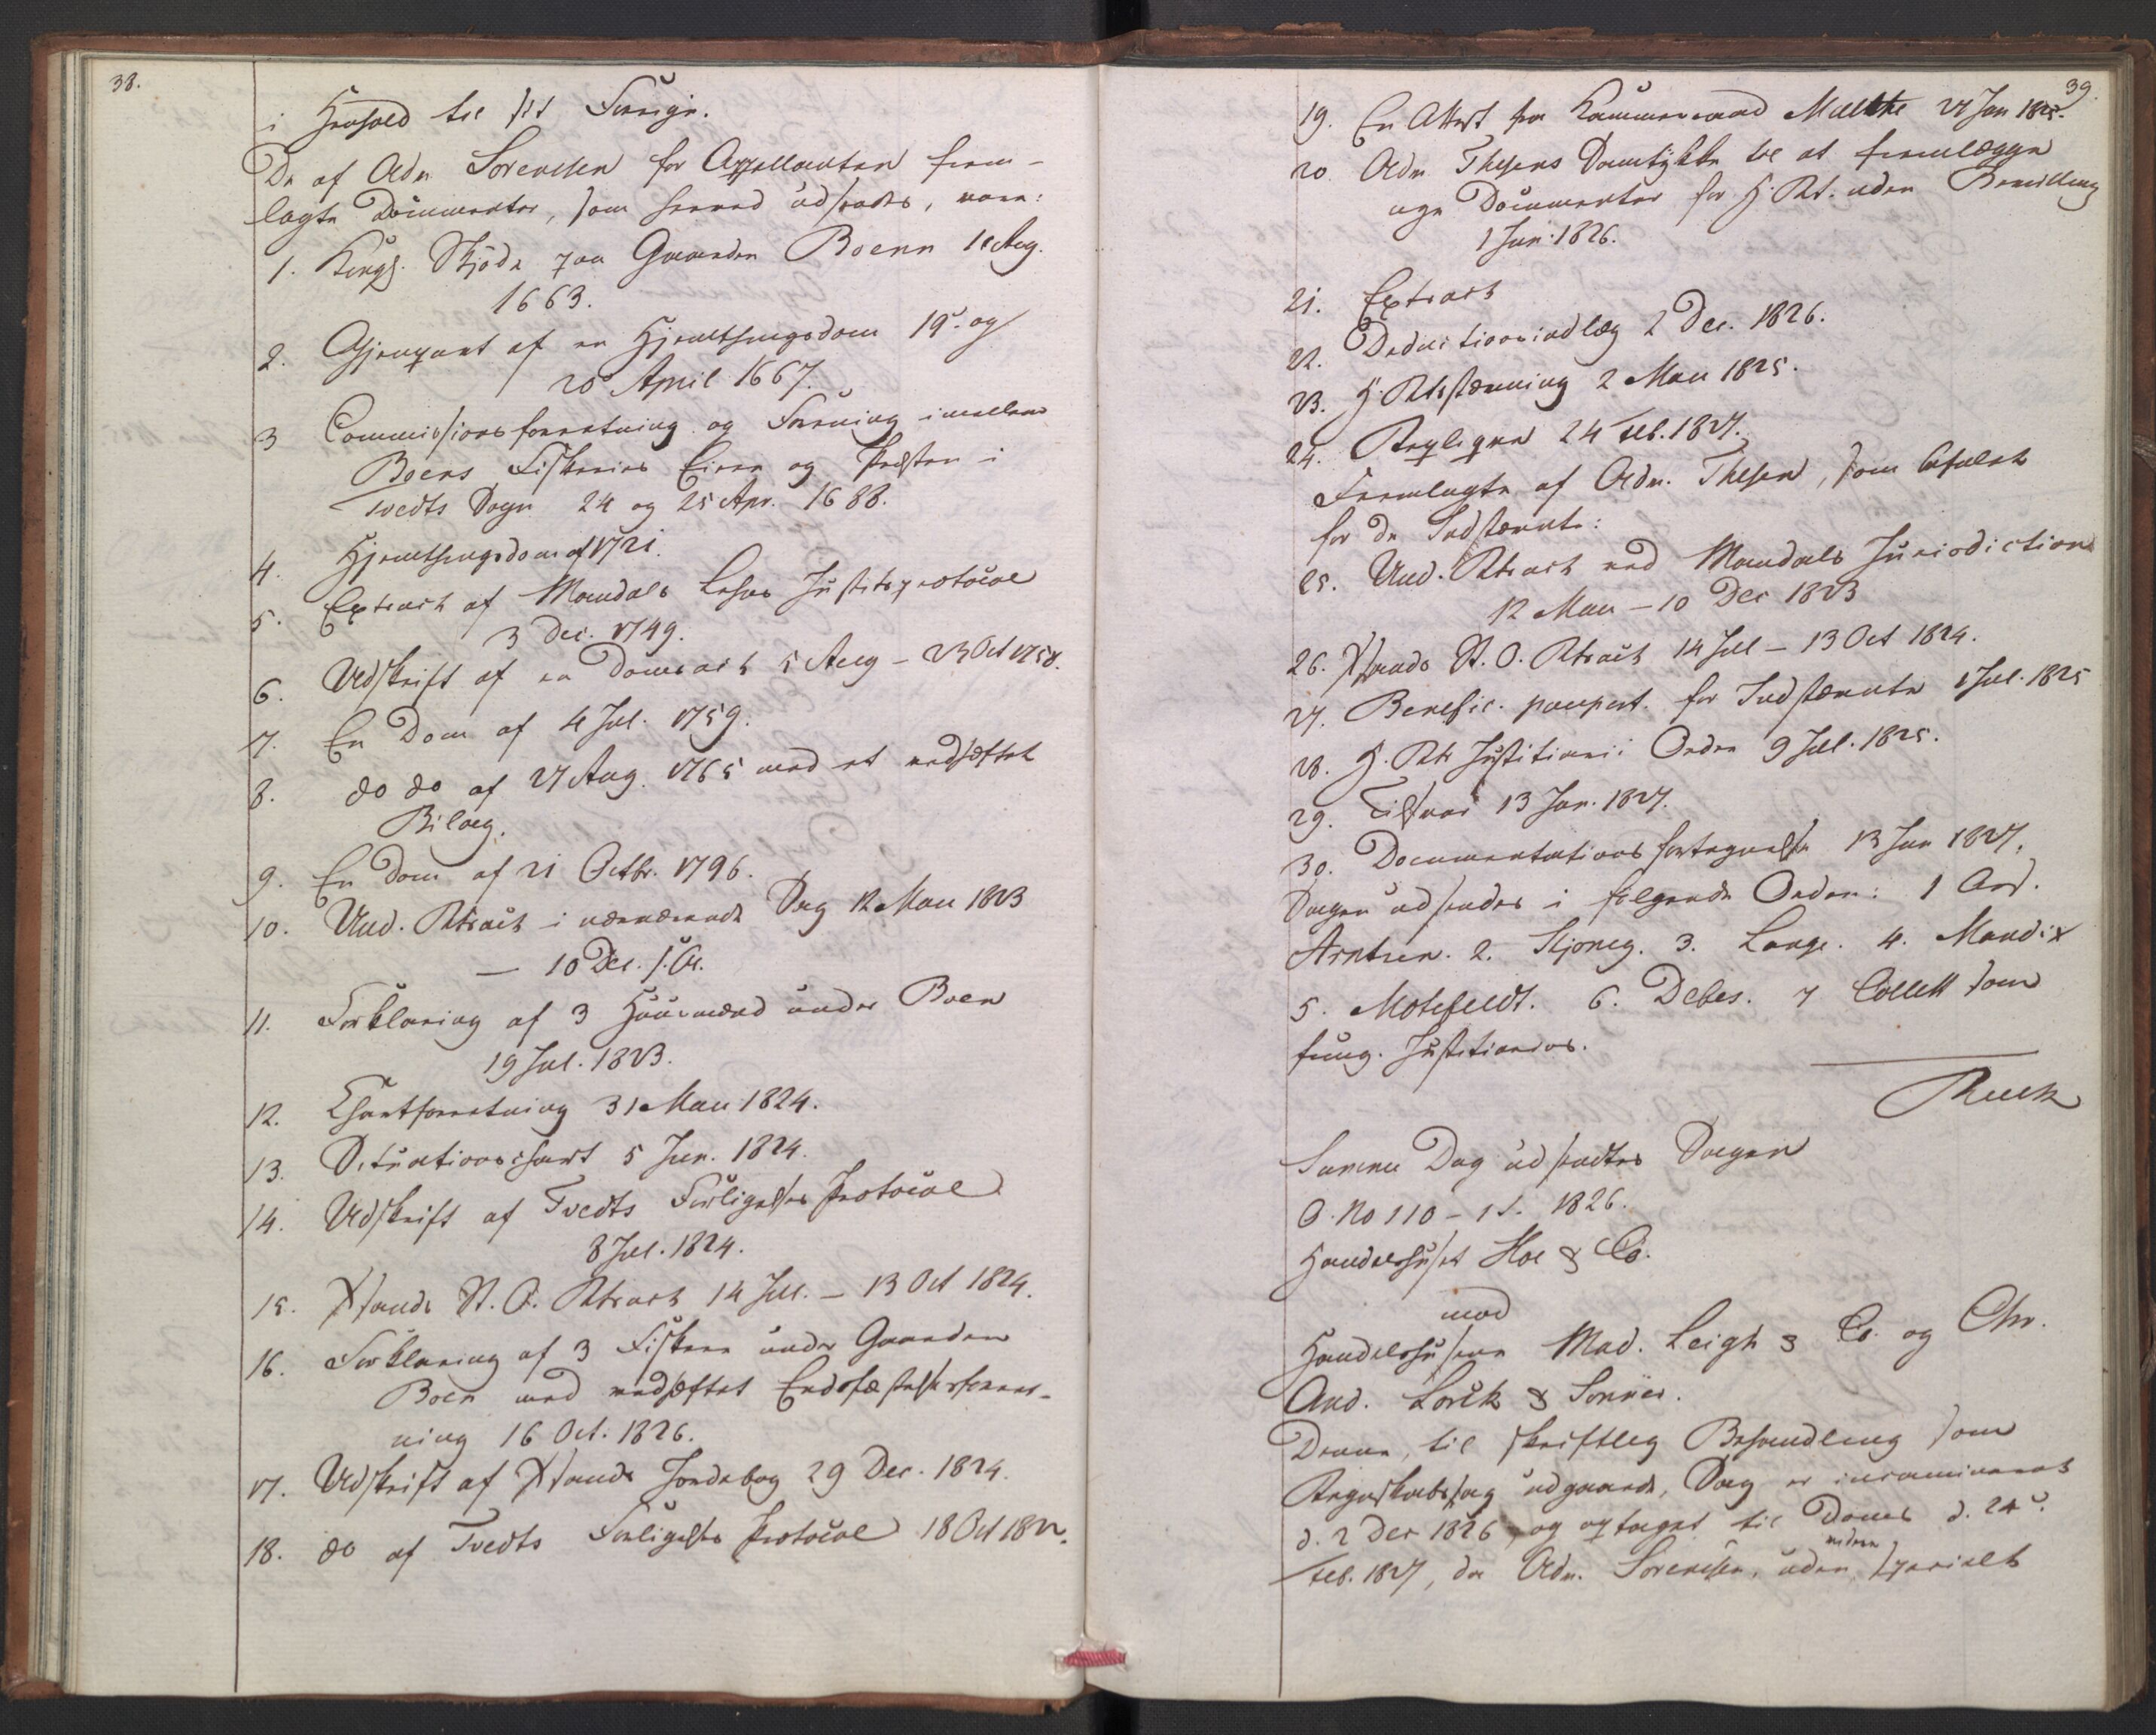 38.
i Henhold til sit Forrige.
De af Adv. Sörensen for Appellanten frem-
lagte Documenter, som herved udstedes, vare:
1. Kongl. Skjöde paa Gaarden Boenn 1 Aug.
1663.
2. Gjenpart af en Hjemthingsdom 19. og
20 April 1667.
3 Commissionsforretning og Forening imellem
Boens Fiskeries Eiere og Præsten i
Tvedts Sogn 24 og 25 Apr. 1688.
4. Hjemthingsdom af 1721.
5. Extract af Mandals Lehns Justitsprotocol
3 Dec. 1749.
6. Udskrift af en Domsact 5 Aug - 23 Oct 1758.
7. En Dom af 4 Jul. 1759.
8. do do af 27 Aug. 1765 med et vedhæftet
Bilag.
9. En Dom af 21 Octbr. 1796.
10. Und. Rtsact i nærværende Sag 12 Mai 1823
— 10 Dec. s. A.
11. Forklaring af 3 Huusmænd under Boen
19 Jul. 1823.
12. Skjøntforretning 31 Mai 1824.
13. Situationschart 5 Jun. 1824.
14. Udskrift af Tvedts Forligelses Protocol
8 Jul. 1824.
15. Xsands St. O. Rtsact 14 Jul. - 13 Oct 1824.
16. Forklaring af 3 Fiskere under Gaarden
Boen med vedhæftet Edsfæstelsesforret-
ning 16 Oct. 1826.
17. Udskrift af Xsands Jordebog 29 Dec. 1824.
18. do af Tvedts Forligelses Protocol 18 Oct 1822.
39.
19. En Attest fra Kammerraad Malthe 27 Jan 1825.
20 Adv. Thesens Samtykke til at fremlægge
nye Documenter for H. Rt. uden Bevilling
1 Jun. 1826.
21. Extract
22. Deductionsindlæg 2 Dec. 1826.
23. H. Rtsstævning 2 Mai 1825.
24. Repliqven 24 Feb. 1827.
Fremlagte af Adv. Thesen, som befalet
for de Indstævnte:
25. Und. Rtsact ved Mandals Jurisdiction
12 Mai — 10 Dec 1823
26. Xsands St. O. Rtsact 14 Jul — 13 Oct 1824.
27. Benefic. paupert. for Indstævnte 1 Jul. 1825
28. H. Rts Justitiarii Orden 9 Jul. 1825.
29. Tilsvar 13 Jan. 1827.
30. Documentationsfortegnelse 13 Jan 1827.
Sagen udstedes i følgende Orden: 1 Ass.
Arntzen. 2. Skjoneg. 3. Lange. 4. Mandix
5. Motzfeldt. 6. Debes. 7 Collett som
fung. Justitiarius.
Ruck
Samme Dag udstedtes Sagen
A. No 110 - 1 S. 1826.
Handelshuset Hoe & Co.
mod
Handelshusene Mad. Leigh & Co. og Chr.
And. Lorck & Sönner.
Denne, til skriftlig Behandling som
Regnskabssag udgaaede, Sag er incamineret
d. 2 Dec 1826 og optaget til Doms d. 24.
Feb. 1827, da Adv. Sörensen, uden videre specielt